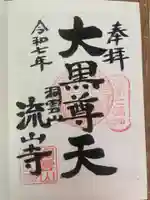 奉拝
大黒尊天
洞雲山
流山寺
令和七年